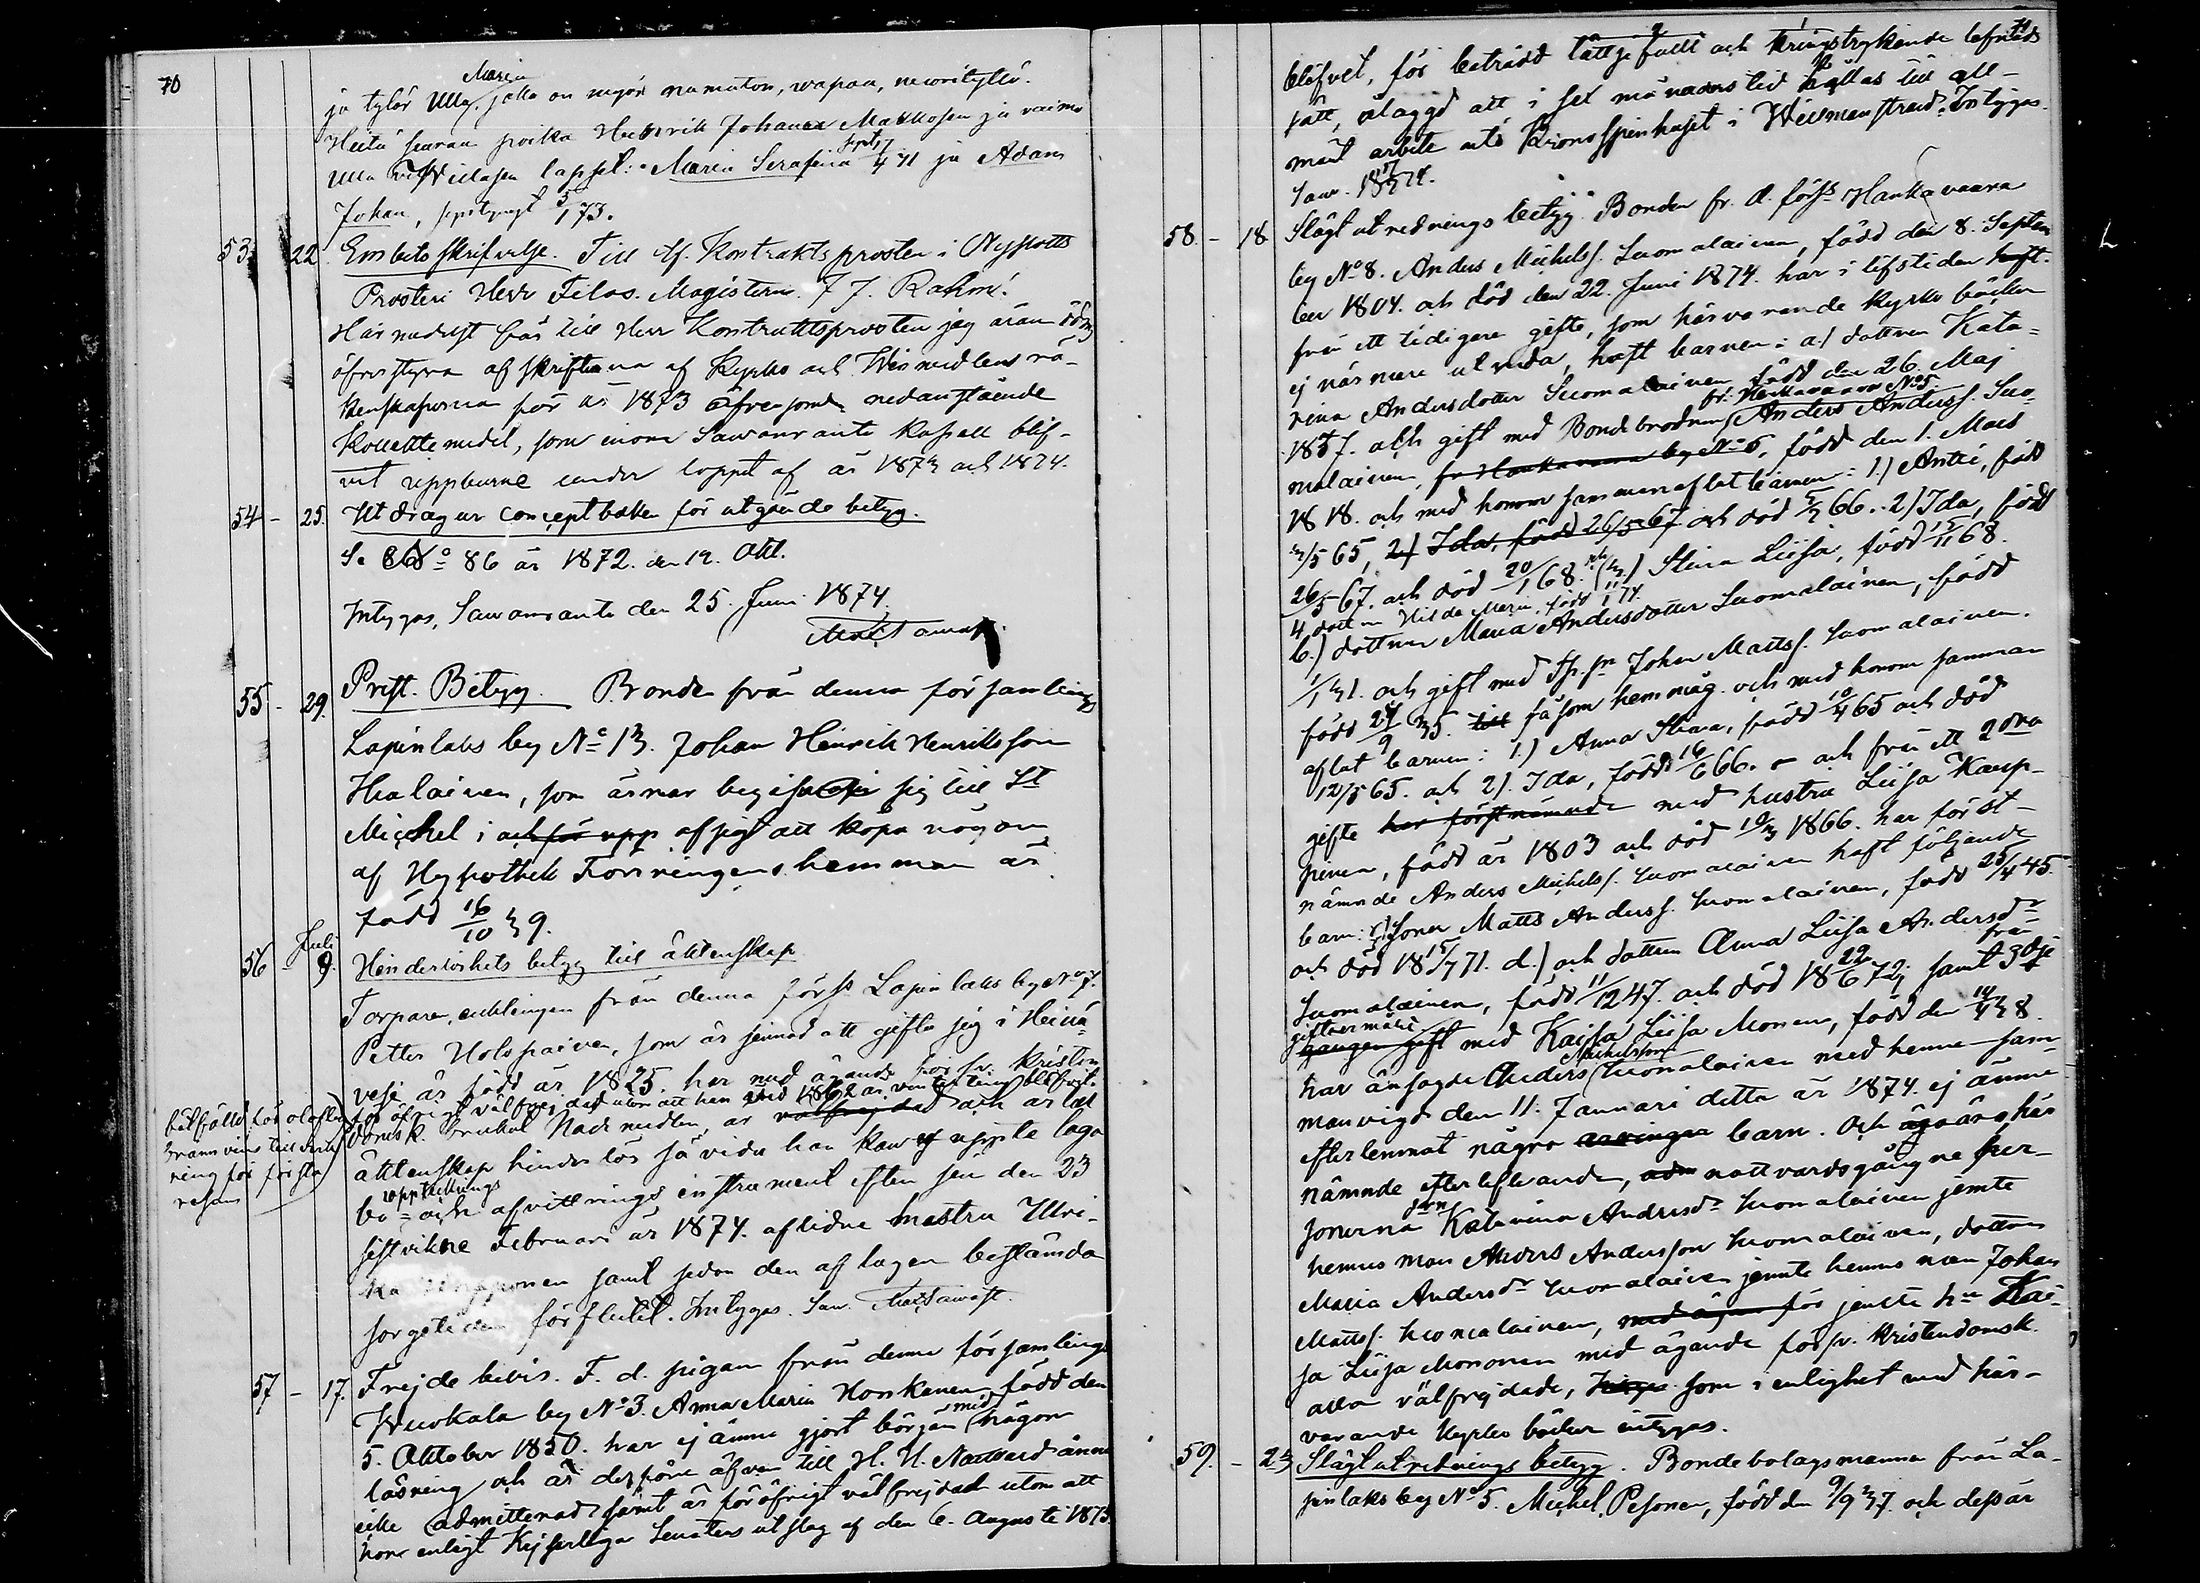 70
Maria
ja tytär Ulla, jolla on nyjör numaton, wapaa, neiorityttö.
Heitä seuraa poika Hendrik Johanes Makkosen ja vaimo
Ulla lapset: Maria Serafina 4 71 ja Adam
Johan, syntynyt 5/1 73.
53. 22. Embetsskrifvelse. Till tf. Kontraktsprosten i Nyslotts
Prosteri Herr Filos. Magistern J. J. Rahm!
Härmedelst får till Herr Kontraktsprosten jag äran öd-
öfverstyra afskrifterna af Kyrko och Weinmedlens rä-
kenskaperna för år 1873 äfvensom nedanstående
Kollektemedel, som inom Sawonranta Kapell blif-
vit uppburne under loppet af år 1873 och 1874.
54 - 25. Utdrag ur conceptboken för utgående betyg.
Se No 86 år 1872. den 19. Okt.
Intygas, Sawonranta den 25. Juni 1874.
55 - 29. Prest. Betyg. Bonden från denna församlings
Lapinlaks by No 13. Johan Henrik Henriksson
Hialainen, som ärnar begifva sig till St
Michel i och för upp afsigt att köpa någon
af Hypothek Föreningens hemman är
född 16/10 39.
56 - Juli 9. Hinderlöshets betyg till äktenskap
Torparen, enklingen från denna förs. Lapinlaks by No 7.
Petter Holopainen, som är sinnad att gifta sig i Heinä-
vesi är född år 1825. har med ägande förfr. Kristen-
för öfrigt välfrejdad utom att han vid 1862 års vinterting blifvit
bötfälld för olaflig
brännvins till verk
ning för första
resan
domsk. brukat Nademedlen, är välfrejdad och är till
äktenskap hinderlös så vida han kan uppte laga
bo- uppteknings och afvittrings instrument efter sin den 23
sistvikne Februari år 1874. aflidne hustru Ulri-
ka samt sedan den af lagen bestämda
sorgetiden förflutit. Intygas. Saw.
57 - 17. Frejdebevis. F. d. pigan från denna församlings
Wuokala by No 3. Anna Maria Honkanen, född den
5. Oktober 1850. har ej ännu gjort början med någon
läsning och är desföre äfven till H. H. Nattvard ännu
icke admitterad samt är för öfrigt välfrejdad utom att
hon enligt Kejserliga Senatens utslag af den 6. Augusti 1873.
71
blifvet, för beträdd lättjefullt och kringstrykande lefnads
sätt, ålagd att i sex månaders tid hållas till all-
mänt arbete vid Kronospinhuset i Wilmanstrand. Intygas.
Saw. 74.
58 - 18. Slägtutrednings betyg. Bonden fr. d. förs. Hankavaara
by No 8. Anders Michelss. Suomalainen, född den 8. Septem
ber 1804. och död den 22. Juni 1874. har i lifstiden haft.
från ett tidigare gifte, som härvarande kyrko böcker
ej närmare utreda, haft barnen: a) dottren Kata-
rina Andersdotter Suomalainen född den 26. Maj
1837. och gift med Bondebrodren fr. Hankavaara No 5. Anders Anderss. Suo-
malainen, fr Hankavaara by No 5, född den 1. Mars
1818. och med honom sammanaflat barnen: 1.) Antti, född
3/5 65, 2) Ida, född 26/5 67 och död 5/3 66. 2) Ida, född
26/5 67. och död 20/1 68. (3) Stina Liisa, född 15/11 68.
4. dottren Hilda Maria, född 74.
b.) dottren Maria Andersdotter Suomalainen, född
1/1 31. och gift med Johan Mattss. Suomalainen.
född 24/9 35. till såsom hemmåg. och med honom samman
aflat barnen: 1.) Anna Stina, född 10/4 65 och död
12/5 65. och 2). Ida, född 16/6 66. - och från ett 2dra
gifte har förstnämnde med hustru Liisa Kaup-
pinen, född år 1803 och död 19/3 1866. har först-
nämnde Anders Michelss. Suomalainen haft följande
barn: c) Sonen Matts Anderss. Suomalainen, född 25/4 45.
och död 18 15/7 71. d.) och dottren Anna Liisa Andersdr
Suomalainen, född 11/12 47. och död 18 22/6 72; samt från 3dje
giftermålet gången gift med Kaisa Liisa Monen, född den 10/4 38
har änsagde Anders Michelsson Suomalainen med henne sam-
manvigd den 11. Januari detta år 1874. ej ännu
efterlemnat några arvingar barn. Och äga äro här
nämnde efterlefvande, adm nattvardsgångne per-
sonerna Katarina Andersdr Suomalainen jemte
hennes man Anders Andersson Suomalainen, dottren
Maria Andersdr Suomalainen jemte hennes man Johan
Mattss. Suomalainen, med ägan för jemte hn Kai-
sa Liisa Mononen med ägande förfr. Kristendomsk.
alla välfrejdade, Intyga som i enlighet med här-
varande Kyrko böcker intygas.
59. - 23. Slägtutrednings betyg. Bondebolagsmannen från La-
pinlaks by No 5. Michel Pesonen, född den 9/9 37. och dess år